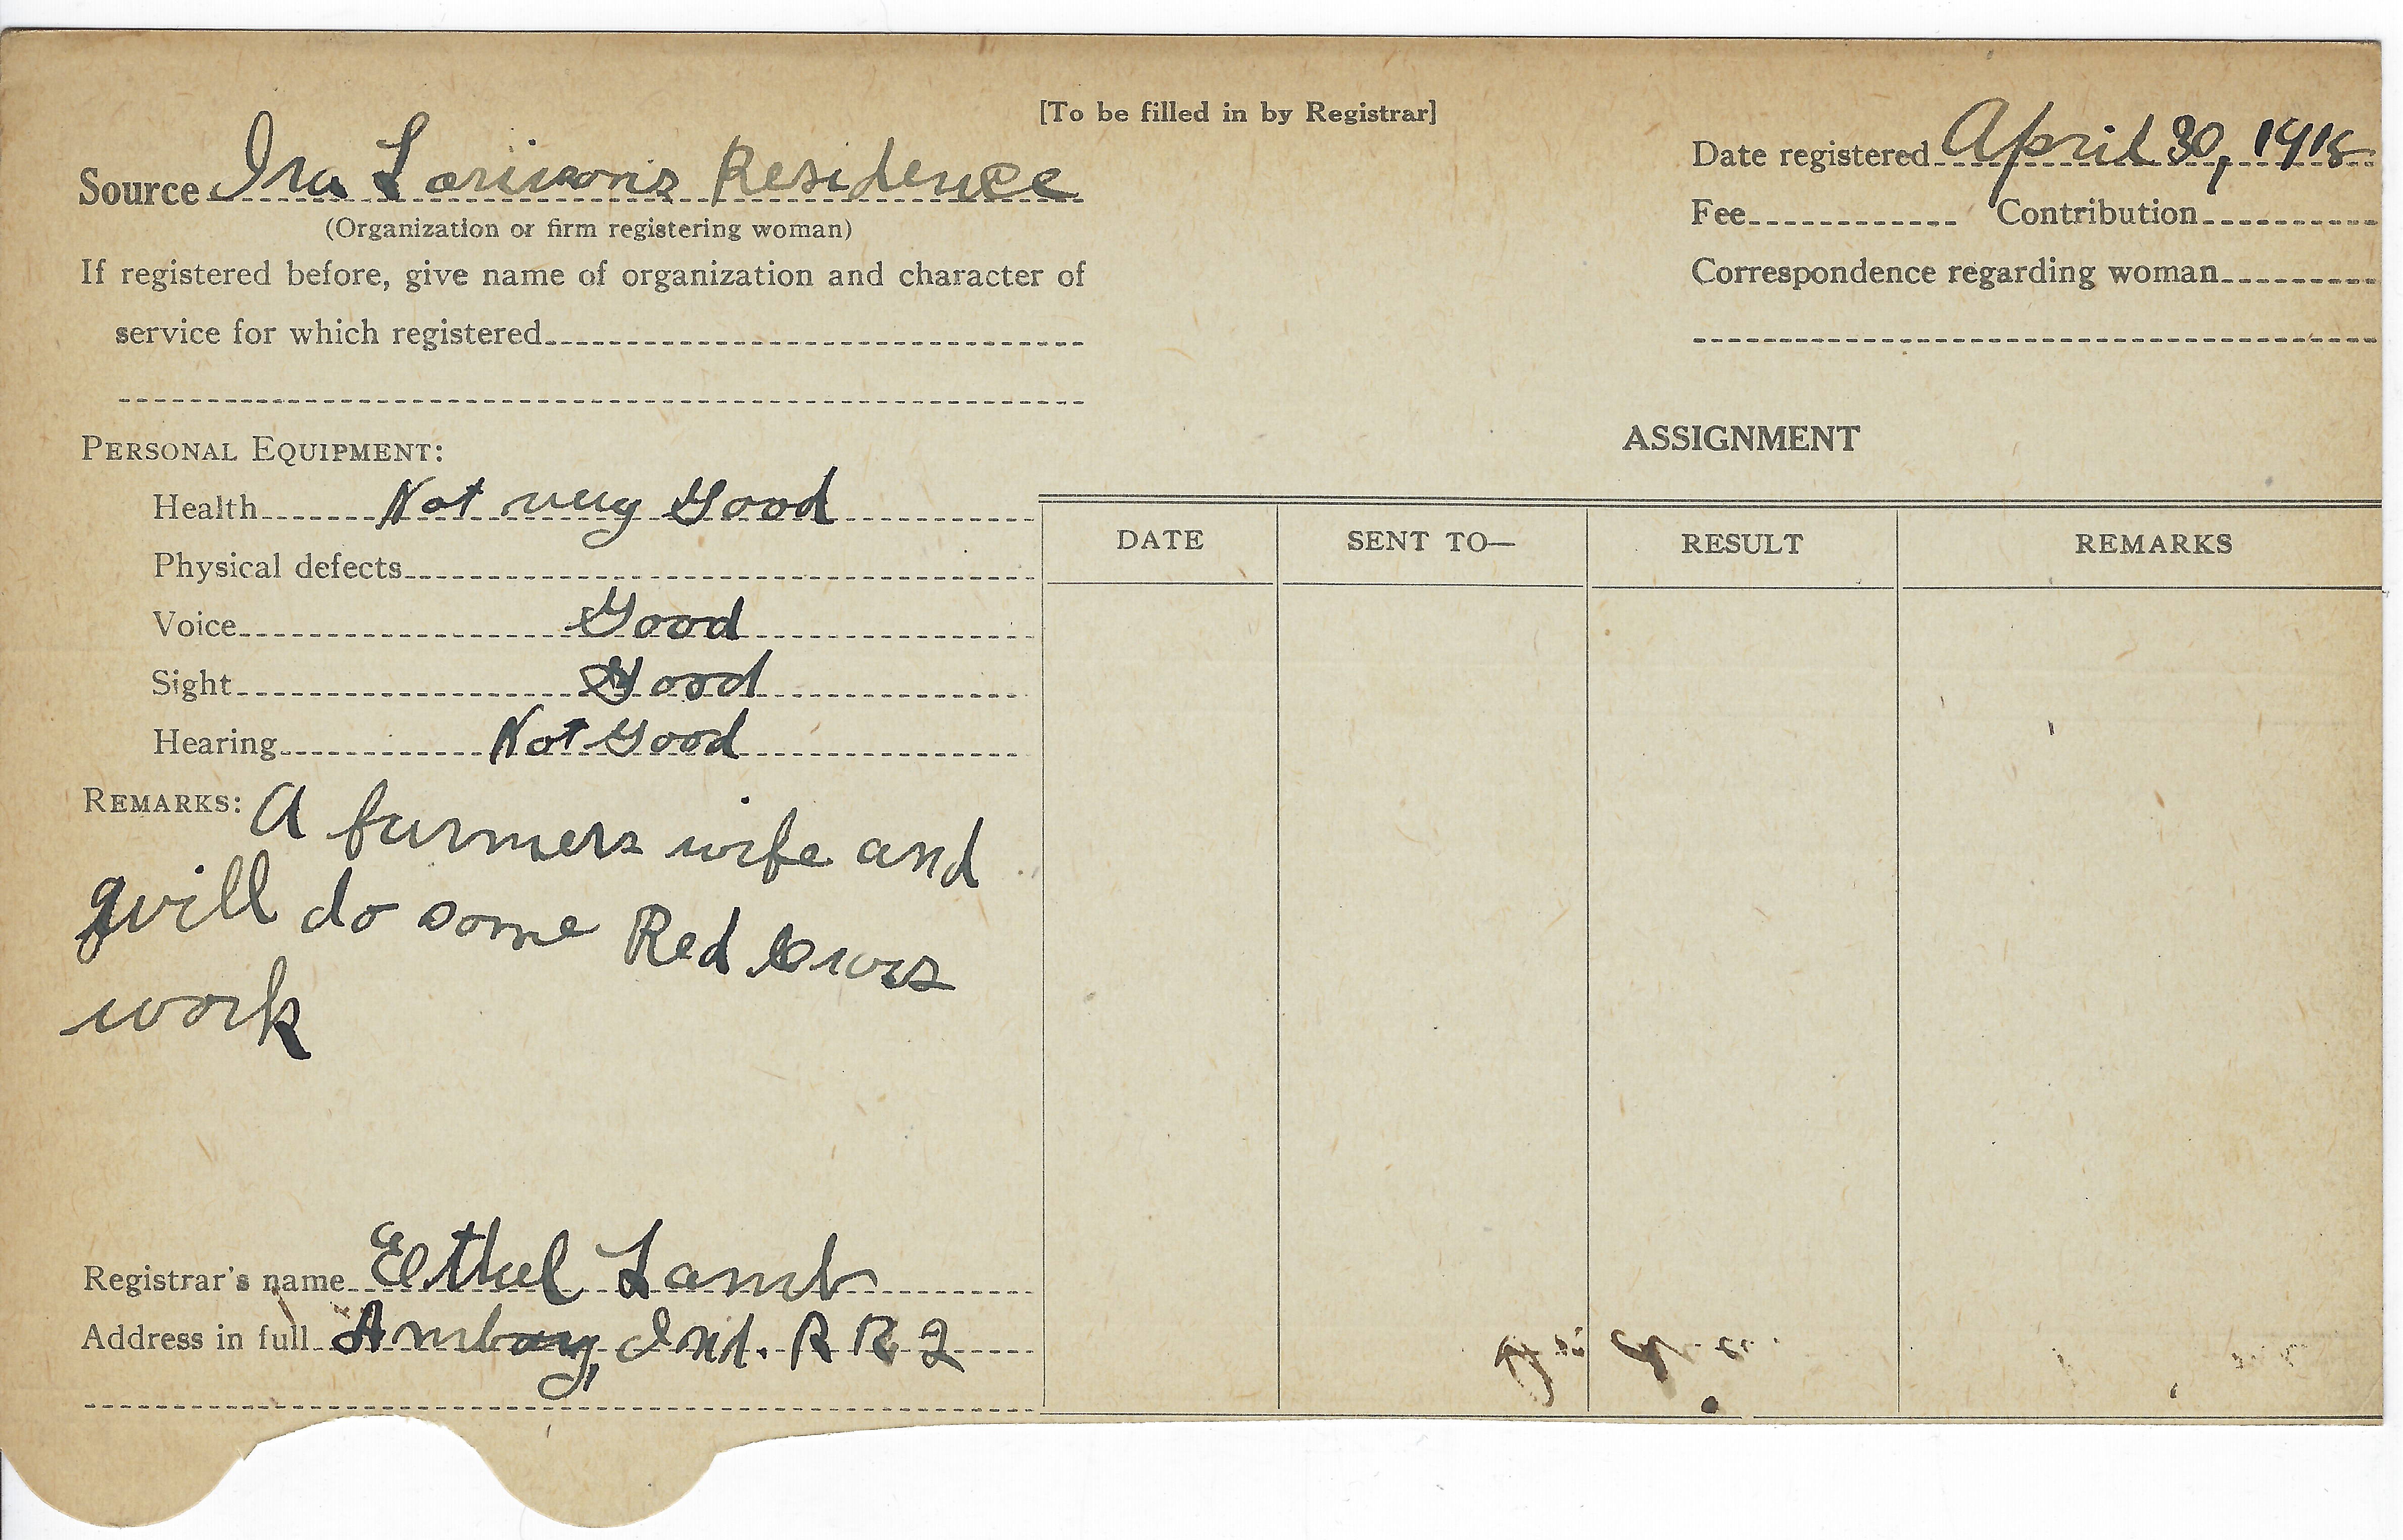 [To be filled in by Registrar]
Source Ira Larisons Residence
(Organization or firm registering woman)
If registered before, give name of organization and character of
service for which registered
Date registered April 30, 1918
Fee Contribution
Correspondence regarding woman
PERSONAL EQUIPMENT:
Health Not very Good
Physical defects
Voice Good
Sight Good
Hearing Not Good
REMARKS: A farmers wife and
will do some Red Cross
work
Registrar's name Ethel Lamb
Address in full Amboy, Ind. R R 2
ASSIGNMENT
DATE SENT TO— RESULT REMARKS